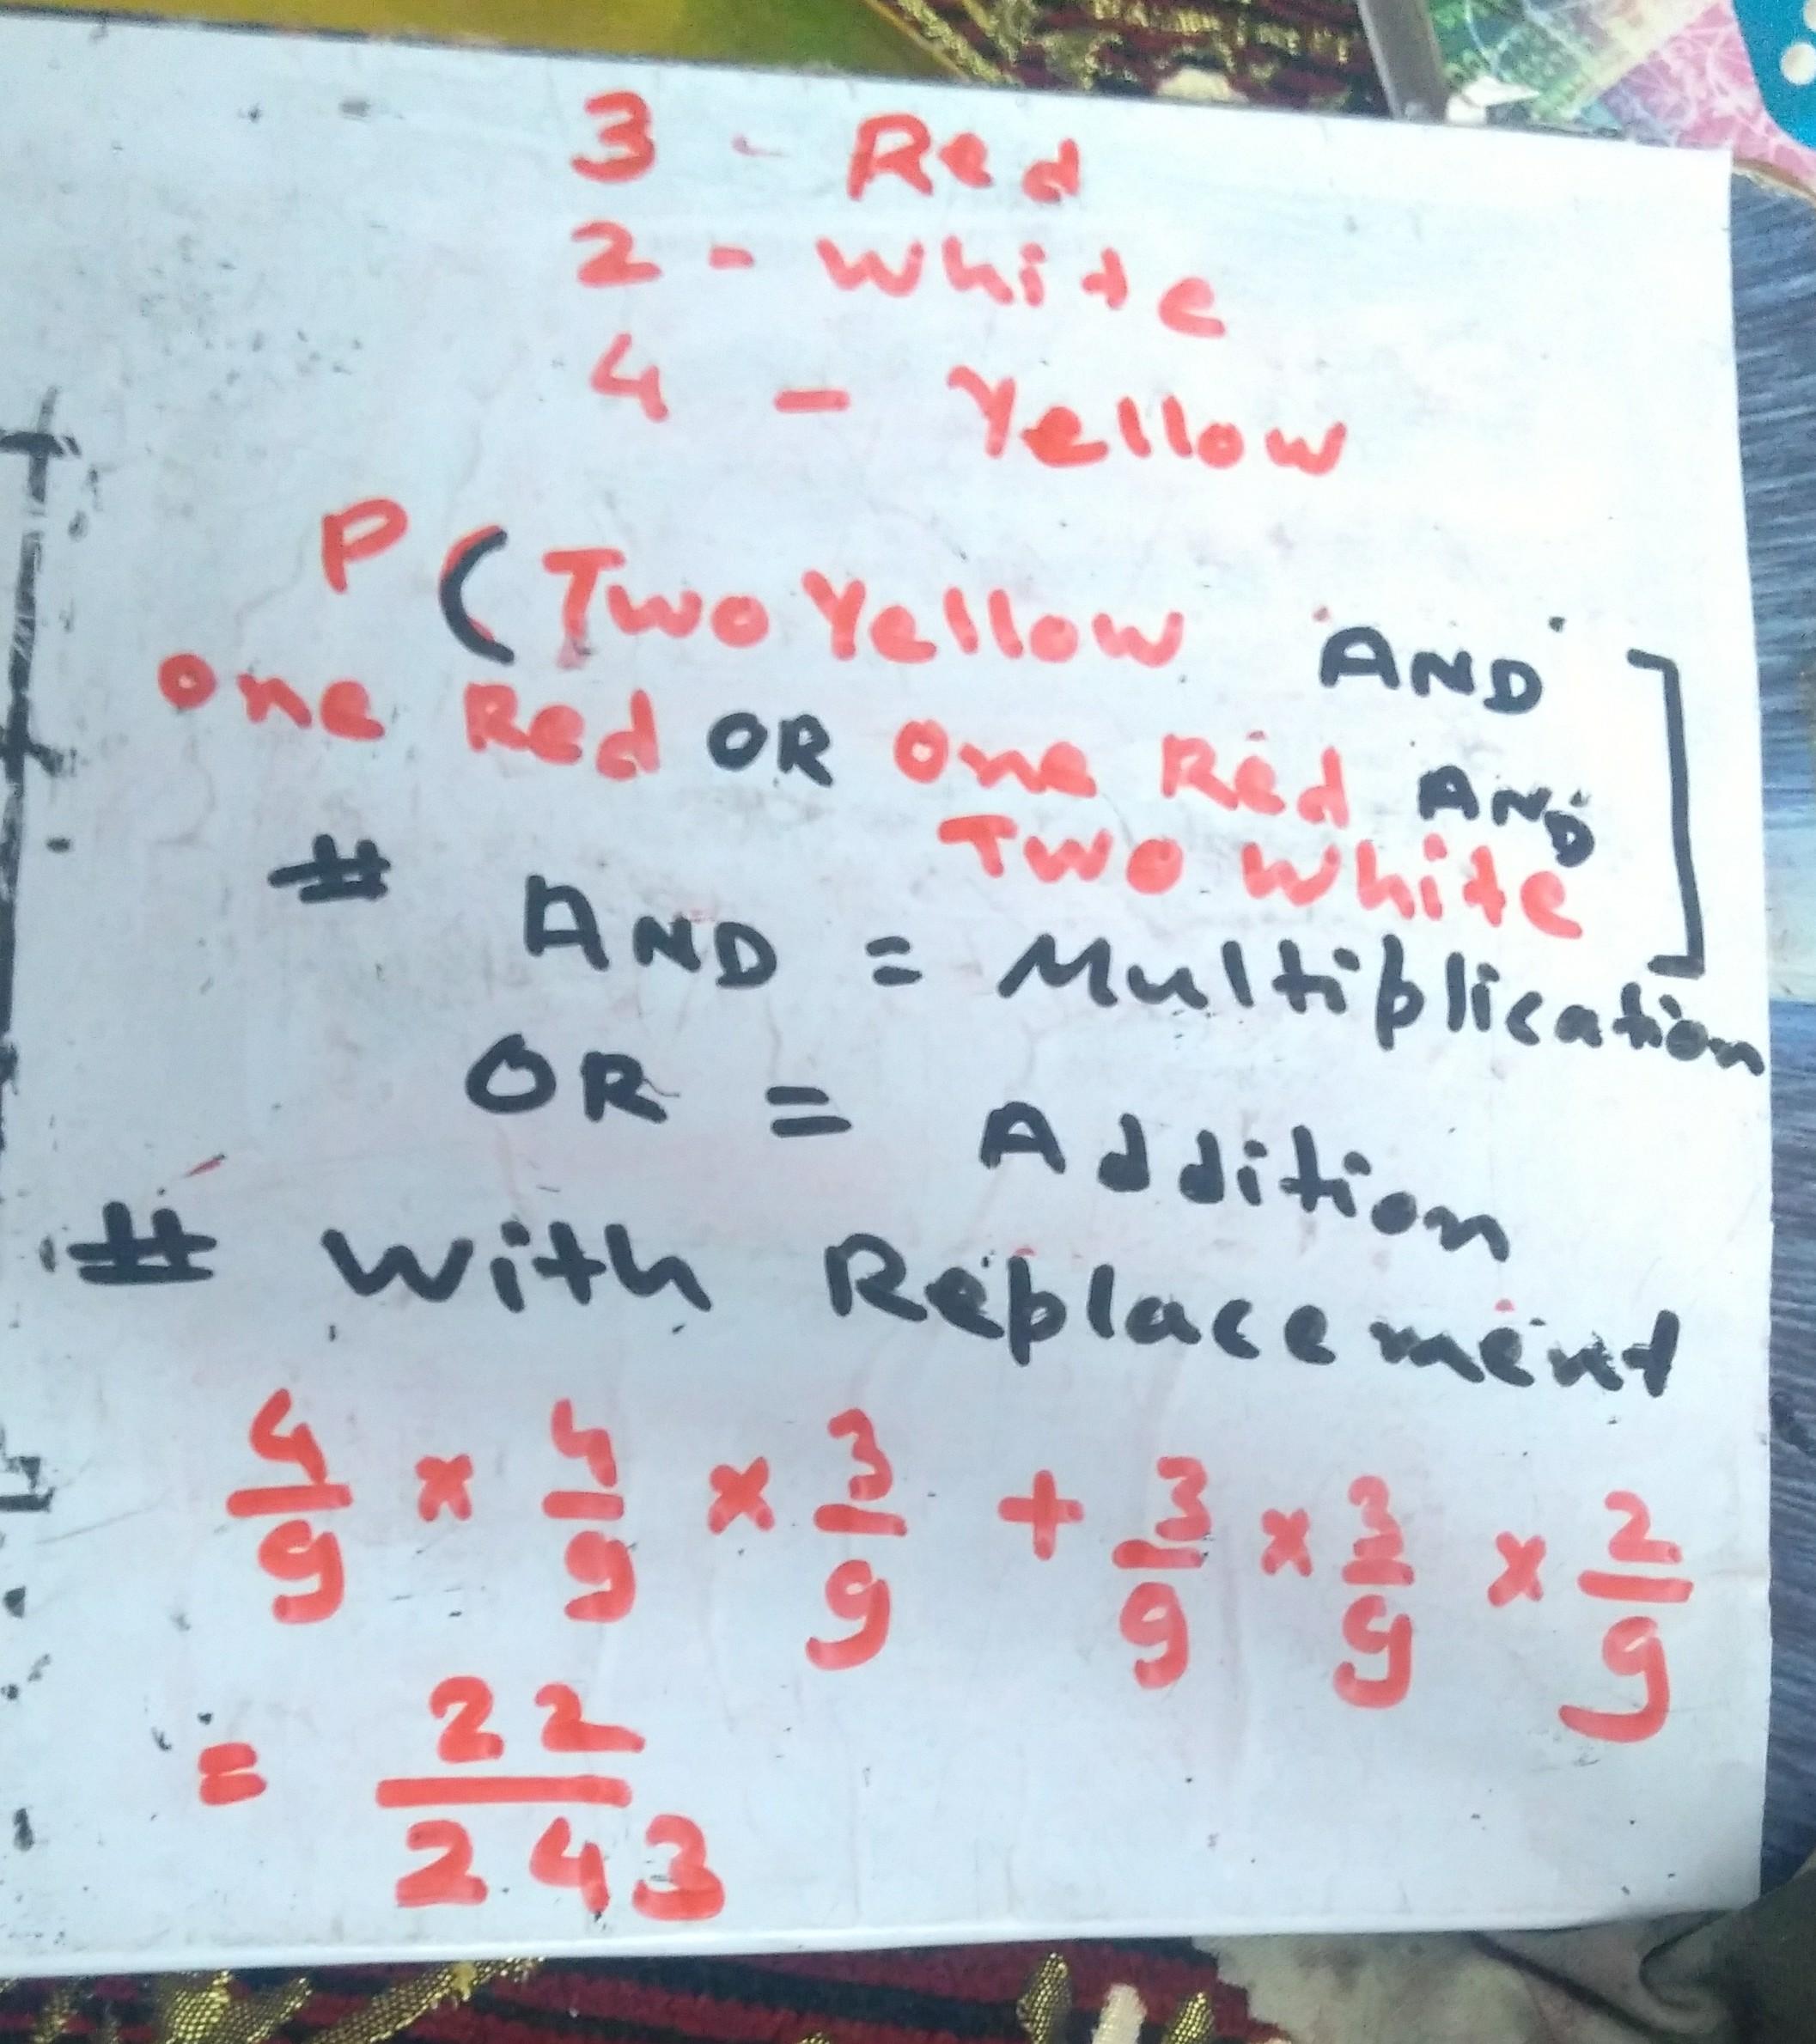 3 - Red
2 - White
4 - Yellow
P (Two Yellow AND
One Red OR One Red AND
Two White]
# AND = Multiplication
OR = Addition
# With Replacement
4/9 × 4/9 × 3/9 + 3/9 × 3/9 × 2/9
= 22/243